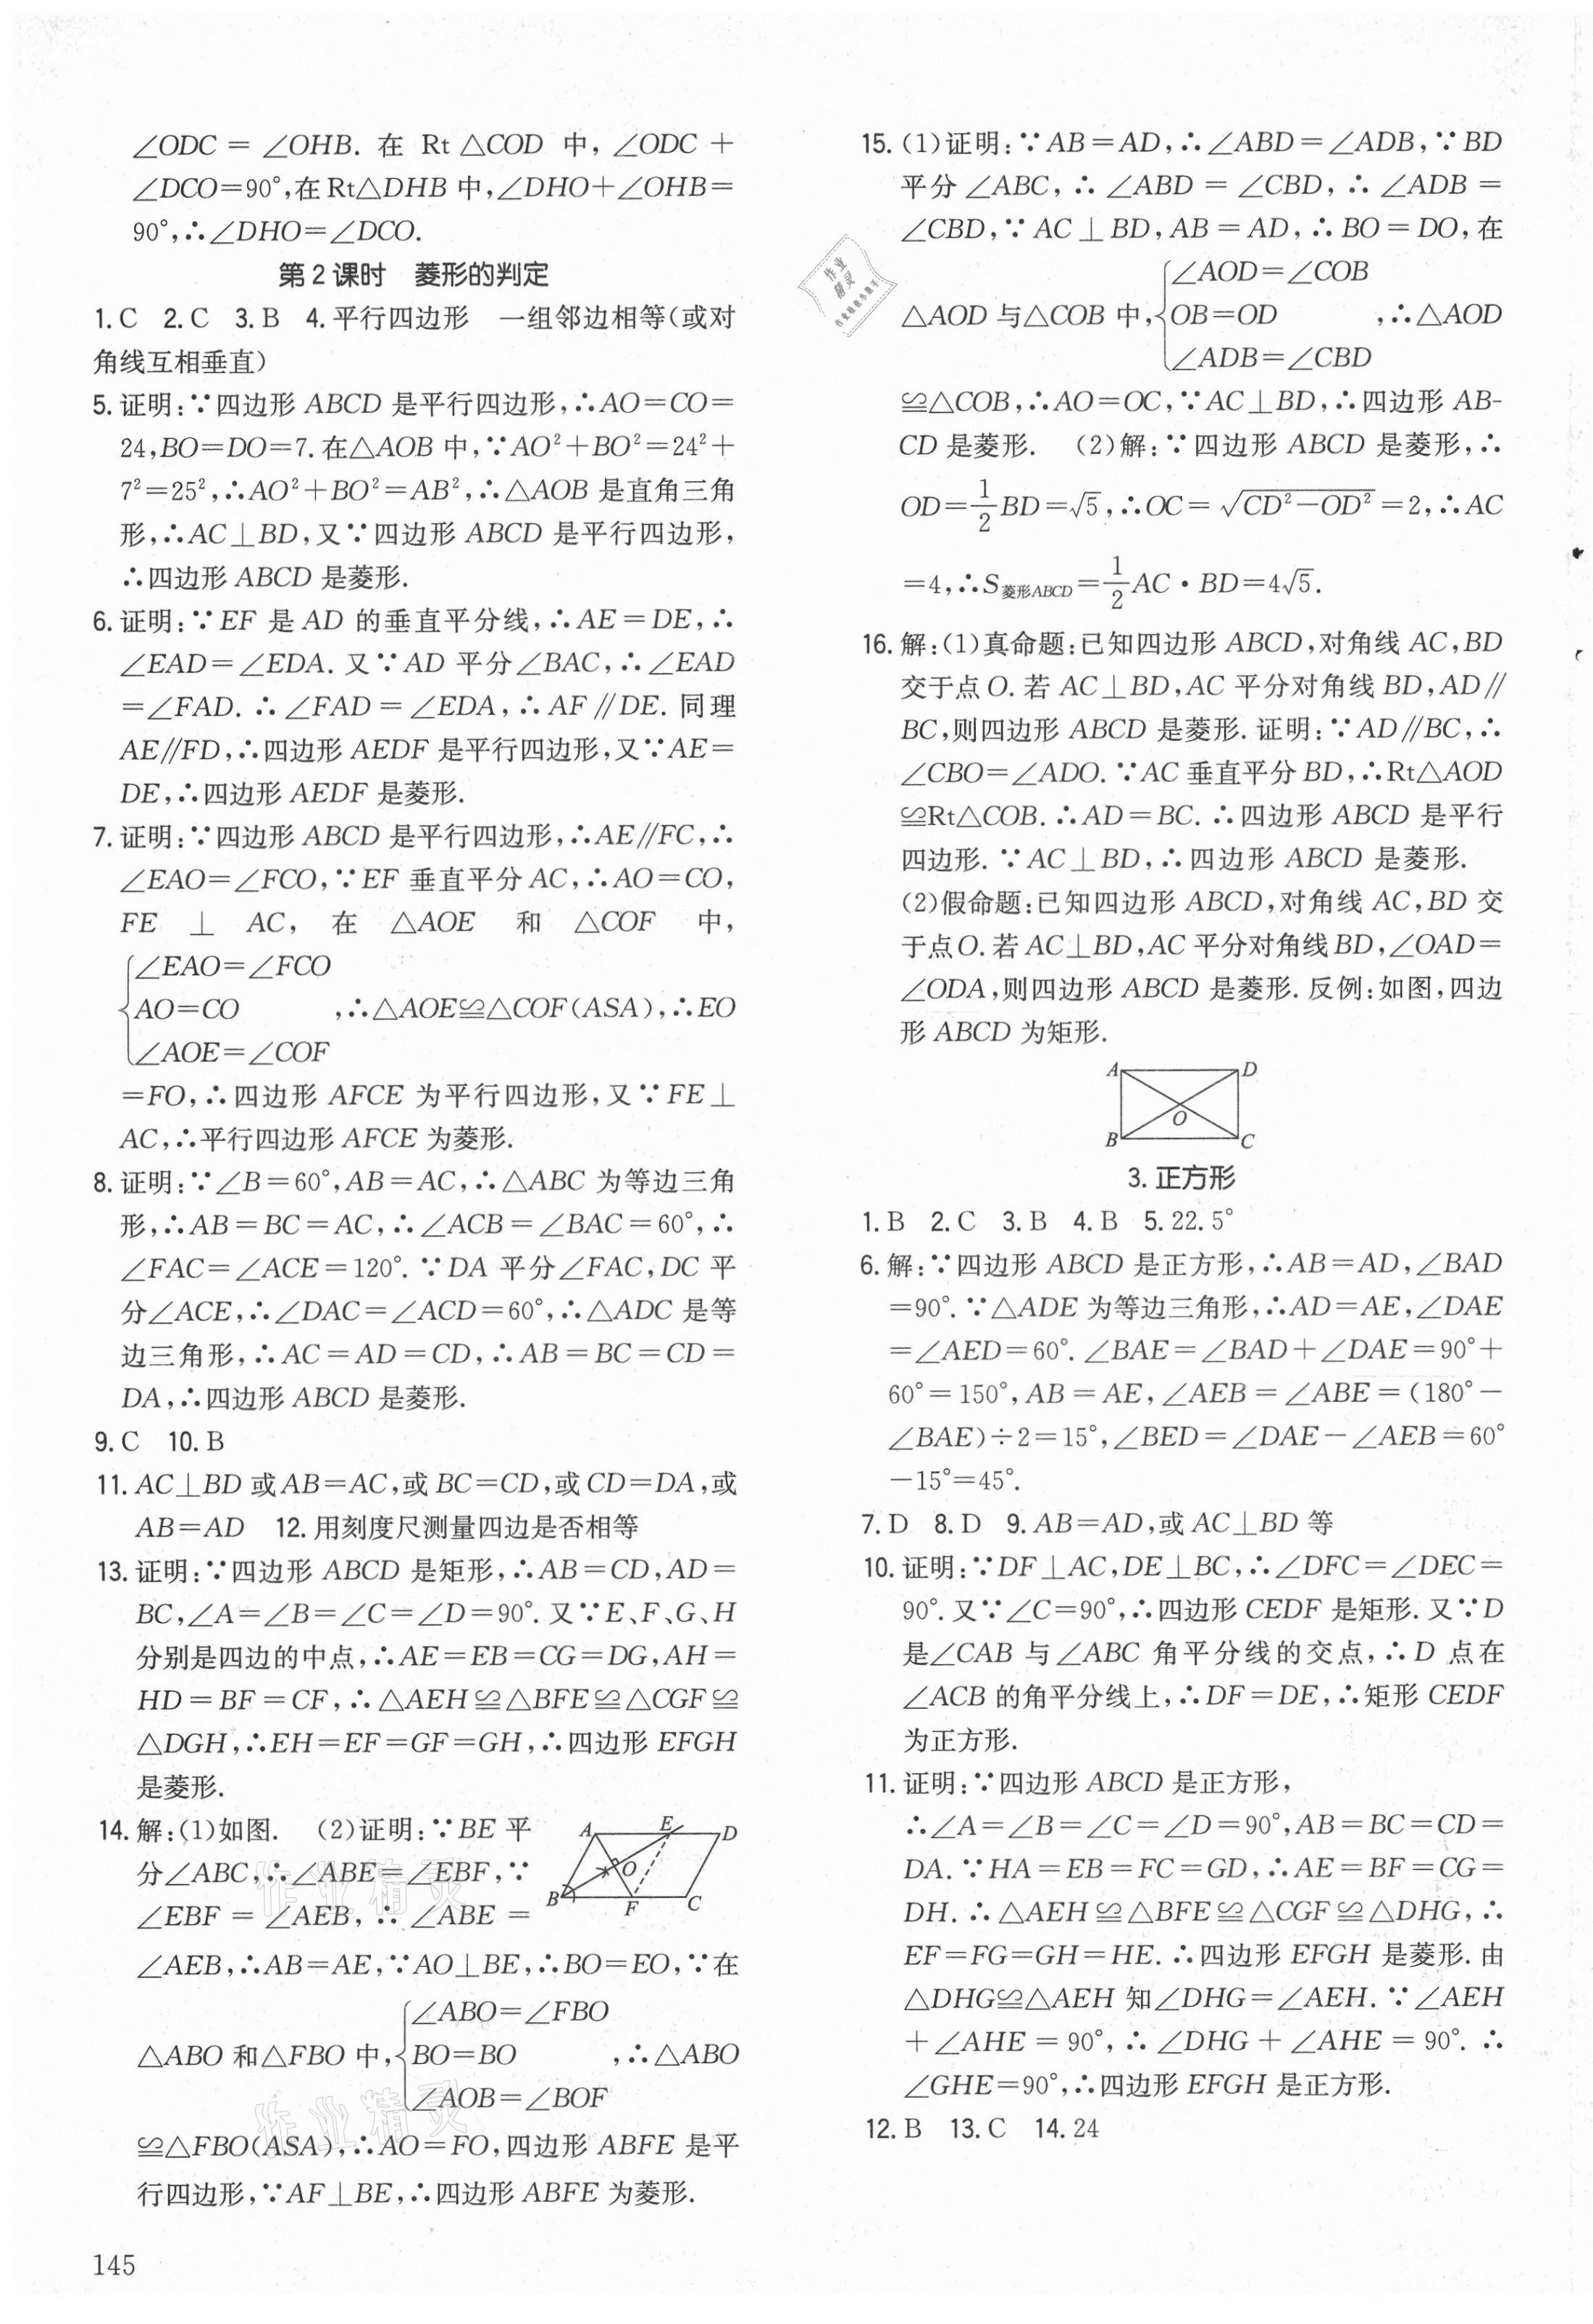 ∠ODC = ∠OHB. 在 Rt △COD 中, ∠ODC +
∠DCO=90°,在Rt△DHB中,∠DHO+∠OHB=
90°,∴∠DHO=∠DCO.
第2课时 菱形的判定
1. C 2. C 3. B 4. 平行四边形 一组邻边相等(或对
角线互相垂直)
5. 证明:∵四边形 ABCD 是平行四边形,∴AO=CO=
24,BO=DO=7. 在△AOB 中,∵AO²+BO²=24²+
7²=25²,∴AO²+BO²=AB²,∴△AOB 是直角三角
形,∴AC⊥BD,又∵四边形 ABCD 是平行四边形,
∴四边形 ABCD 是菱形.
6. 证明:∵EF 是 AD 的垂直平分线,∴AE=DE,∴
∠EAD=∠EDA. 又∵AD 平分∠BAC,∴∠EAD
=∠FAD. ∴∠FAD=∠EDA,∴AF∥DE. 同理
AE∥FD,∴四边形 AEDF 是平行四边形,又∵AE=
DE,∴四边形 AEDF 是菱形.
7. 证明:∵四边形 ABCD 是平行四边形,∴AE∥FC,∴
∠EAO=∠FCO,∵EF 垂直平分 AC,∴AO=CO,
FE ⊥ AC, 在 △AOE 和 △COF 中,
∠EAO=∠FCO
AO=CO ,∴△AOE≌△COF(ASA),∴EO
∠AOE=∠COF
=FO,∴四边形 AFCE 为平行四边形,又∵FE⊥
AC,∴平行四边形 AFCE 为菱形.
8. 证明:∵∠B=60°,AB=AC,∴△ABC 为等边三角
形,∴AB=BC=AC,∴∠ACB=∠BAC=60°,∴
∠FAC=∠ACE=120°. ∵DA 平分∠FAC,DC 平
分∠ACE,∴∠DAC=∠ACD=60°,∴△ADC 是等
边三角形,∴AC=AD=CD,∴AB=BC=CD=
DA,∴四边形 ABCD 是菱形.
9. C 10. B
11. AC⊥BD 或 AB=AC,或 BC=CD,或 CD=DA,或
AB=AD 12. 用刻度尺测量四边是否相等
13. 证明:∵四边形 ABCD 是矩形,∴AB=CD,AD=
BC,∠A=∠B=∠C=∠D=90°. 又∵E、F、G、H
分别是四边的中点,∴AE=EB=CG=DG,AH=
HD=BF=CF,∴△AEH≌△BFE≌△CGF≌
△DGH,∴EH=EF=GF=GH,∴四边形 EFGH
是菱形.
14. 解:(1)如图. (2)证明:∵BE 平
分∠ABC,∴∠ABE=∠EBF,∵
∠EBF = ∠AEB, ∴ ∠ABE =
A E D
O
B F C
∠AEB,∴AB=AE,∵AO⊥BE,∴BO=EO,∵在
∠ABO=∠FBO
△ABO 和△FBO 中, BO=BO ,∴△ABO
∠AOB=∠BOF
≌△FBO(ASA),∴AO=FO,四边形 ABFE 是平
行四边形,∵AF⊥BE,∴四边形 ABFE 为菱形.
145
15. (1)证明:∵AB=AD,∴∠ABD=∠ADB,∵BD
平分∠ABC,∴∠ABD=∠CBD,∴∠ADB=
∠CBD,∵AC⊥BD,AB=AD,∴BO=DO,在
∠AOD=∠COB
△AOD 与△COB 中, OB=OD ,∴△AOD
∠ADB=∠CBD
≌△COB,∴AO=OC,∵AC⊥BD,∴四边形 AB-
CD 是菱形. (2)解:∵四边形 ABCD 是菱形,∴
OD=1/2 BD=√5,∴OC=√(CD²−OD²)=2,∴AC
=4,∴S菱形ABCD=1/2 AC·BD=4√5.
16. 解:(1)真命题:已知四边形 ABCD,对角线 AC,BD
交于点 O. 若 AC⊥BD,AC 平分对角线 BD,AD∥
BC,则四边形 ABCD 是菱形. 证明:∵AD∥BC,∴
∠CBO=∠ADO. ∵AC 垂直平分 BD,∴Rt△AOD
≌Rt△COB. ∴AD=BC. ∴四边形 ABCD 是平行
四边形. ∵AC⊥BD,∴四边形 ABCD 是菱形.
(2)假命题:已知四边形 ABCD,对角线 AC,BD 交
于点 O. 若 AC⊥BD,AC 平分对角线 BD,∠OAD=
∠ODA,则四边形 ABCD 是菱形. 反例:如图,四边
形 ABCD 为矩形.
A D
O
B C
3. 正方形
1. B 2. C 3. B 4. B 5. 22.5°
6. 解:∵四边形 ABCD 是正方形,∴AB=AD,∠BAD
=90°. ∵△ADE 为等边三角形,∴AD=AE,∠DAE
=∠AED=60°. ∠BAE=∠BAD+∠DAE=90°+
60°=150°,AB=AE,∠AEB=∠ABE=(180°−
∠BAE)÷2=15°,∠BED=∠DAE−∠AEB=60°
−15°=45°.
7. D 8. D 9. AB=AD,或 AC⊥BD 等
10. 证明:∵DF⊥AC,DE⊥BC,∴∠DFC=∠DEC=
90°. 又∵∠C=90°,∴四边形 CEDF 是矩形. 又∵D
是∠CAB 与∠ABC 角平分线的交点,∴D 点在
∠ACB 的角平分线上,∴DF=DE,∴矩形 CEDF
为正方形.
11. 证明:∵四边形 ABCD 是正方形,
∴∠A=∠B=∠C=∠D=90°,AB=BC=CD=
DA. ∵HA=EB=FC=GD,∴AE=BF=CG=
DH. ∴△AEH≌△BFE≌△CGF≌△DHG,∴
EF=FG=GH=HE. ∴四边形 EFGH 是菱形. 由
△DHG≌△AEH 知∠DHG=∠AEH. ∵∠AEH
+∠AHE=90°,∴∠DHG+∠AHE=90°. ∴
∠GHE=90°,∴四边形 EFGH 是正方形.
12. B 13. C 14. 24
作业精灵
作业精灵
作业精灵